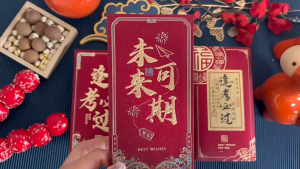 未来
可期
BEST WISHES
逢考
必过
逢考必过
福